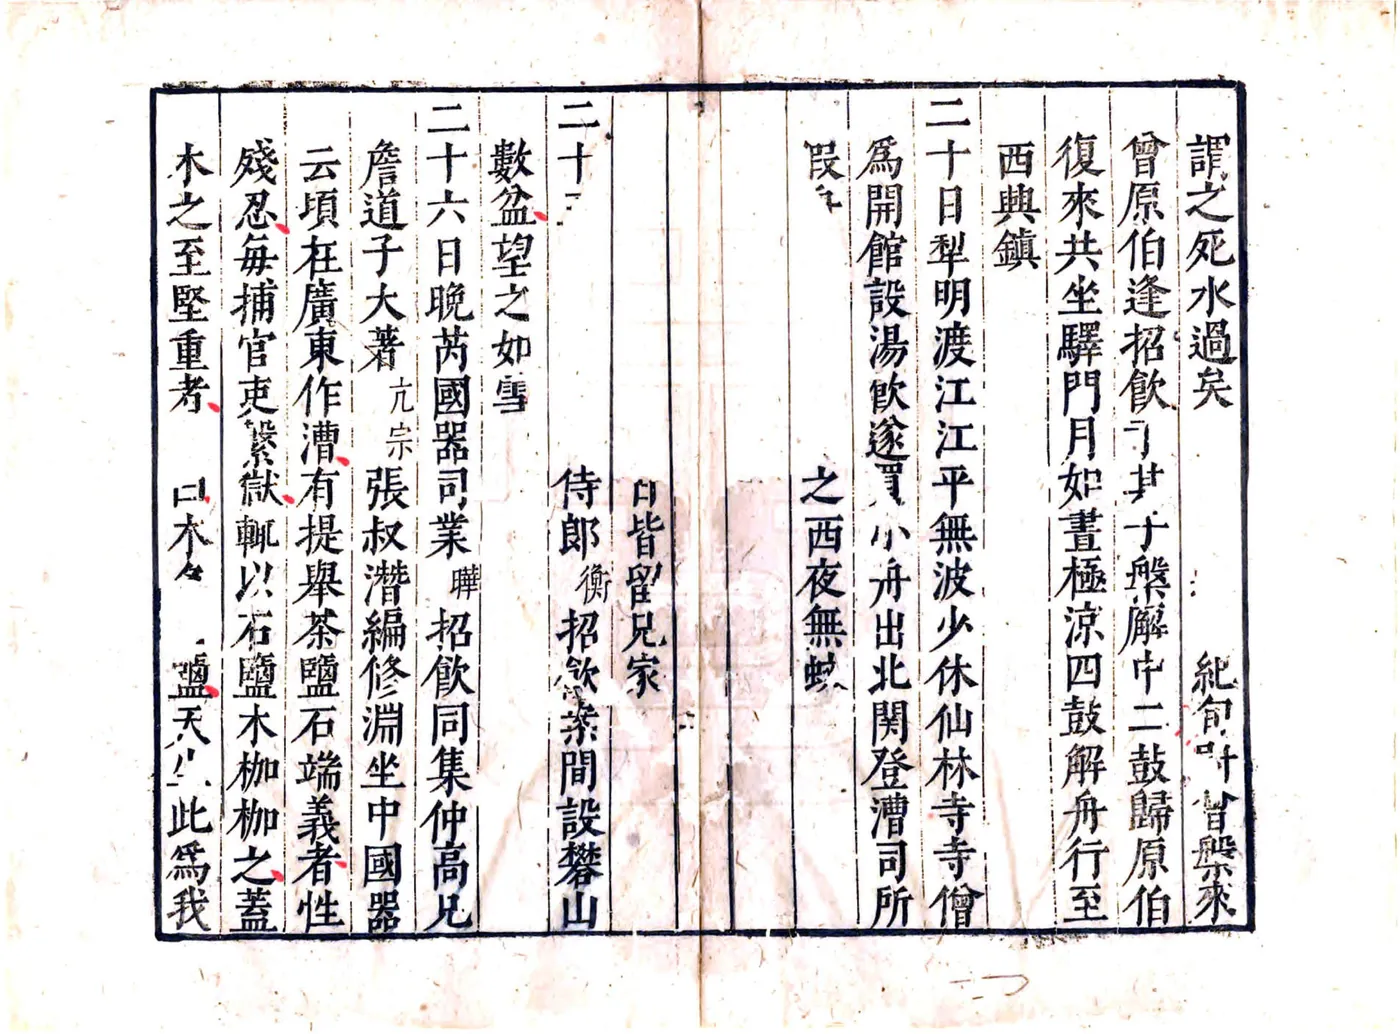 謂之死水過矣 紀旬 曾槃來
曾原伯逢招飲于其子槃廨中二鼓歸原伯
復來共坐驛門月如晝極涼四鼓解舟行至
西興鎮
二十日犁明渡江江平無波少休仙林寺寺僧
爲開館設湯飲遂買小舟出北関登漕司所
假 之西夜無蚊
日皆留兄家
二十 侍郎衡招飲茶間設礬山
數盆望之如雪
二十六日晚芮國器司業曄招飲同集仲高兄
詹道子大著亢宗張叔潛編修淵坐中國器
云頃在廣東作漕有提舉茶鹽石端義者性
殘忍每捕官吏繫獄輒以石鹽木枷枷之蓋
木之至堅重者 曰木 鹽天生此爲我